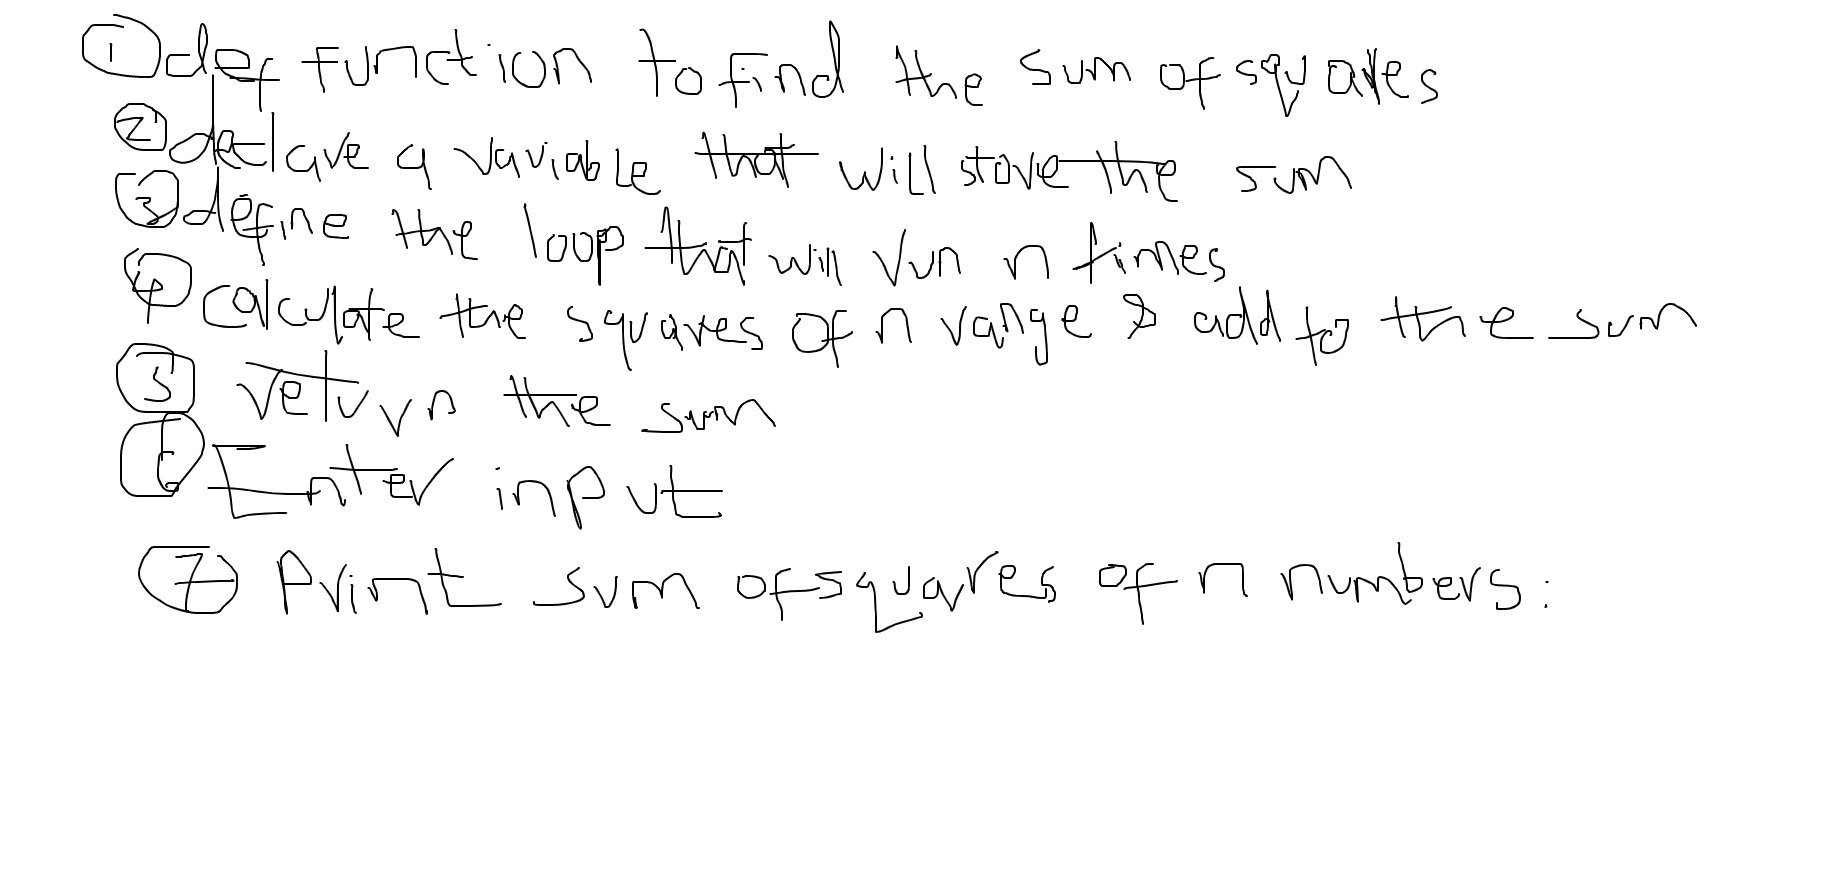 ① def function to find the sum of squares
② declare a variable that will store the sum
③ define the loop that will run n times
④ calculate the squares of n range & add to the sum
⑤ return the sum
⑥ Enter input
⑦ Print sum of squares of n numbers: